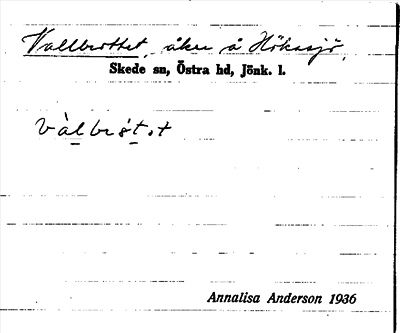 Vallbrottet, åker å Hökasjö,
Skede sn, Östra hd, Jönk. l.
vàlbrøt.t
Annalisa Anderson 1936